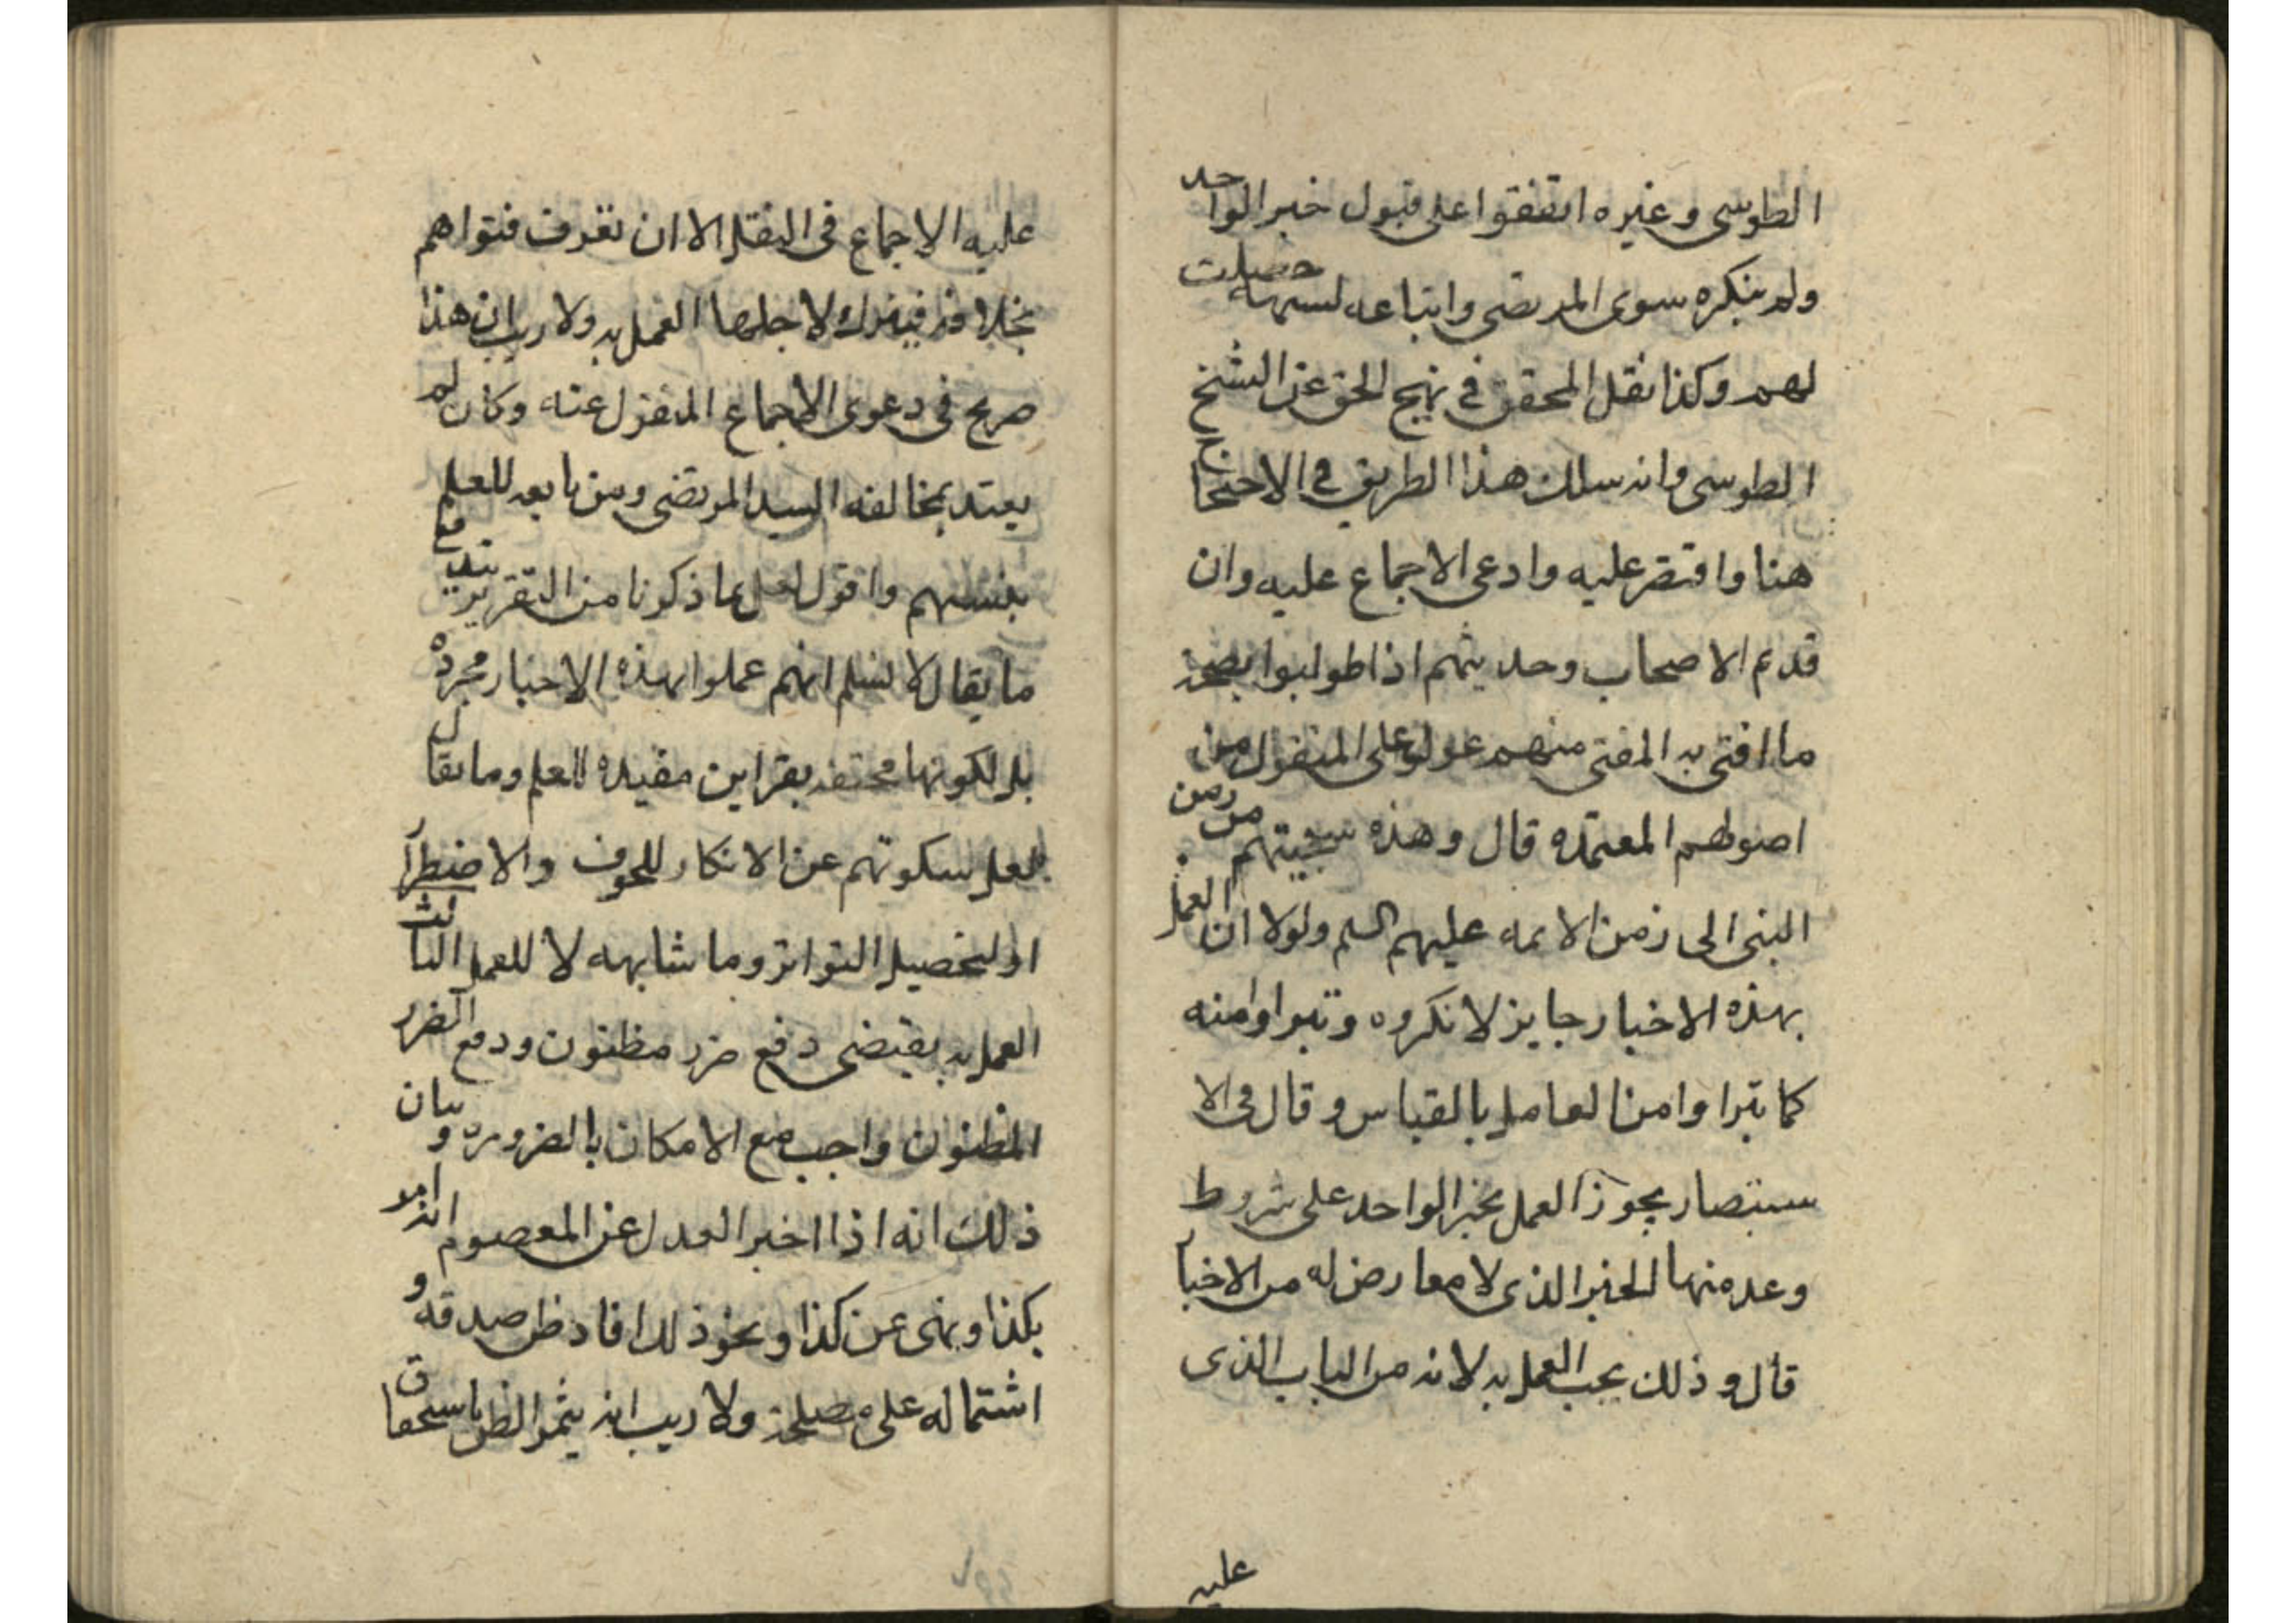 الطوسى وغيره اتفقوا على قبول خبر الواحد
ولم ينكره سوى المرتضى واتباعه لشبهة حصلت
لهم وكذا نقل المحقق فى نهج الحق عن الشيخ
الطوسى وانه سلك هذا الطريق فى الاحتجاج
هنا واقتصر عليه وادعى الاجماع عليه وان
قديم الاصحاب وحديثهم اذا طولبوا بصحة
ما افتى به المفتى منهم عولوا على المنقول من
اصولهم المعتمدة قال وهذه سجيتهم من زمن
النبى الى زمن الايمه عليهم السلم ولولا ان العمل
بهذه الاخبار جايز لانكروه وتبراوا منه
كما تبراوا من العامل بالقياس وقال فى الا
ستبصار يجوز العمل بخبر الواحد على شروط
وعد منها الخبر الذى لا معارض له من الاخبار
قال وذلك يجب العمل به لانه من الباب الذى
عليه
عليه الاجماع فى النقل الا ان تعرف فتواهم
بخلافه فيترك لاجلها العمل به ولا ريب ان هذا
صريح فى دعوى الاجماع المنقول عنه وكان لم
يعتد بمخالفه السيد المرتضى ومن تابعه للعلم
بنسبهم واقول لعل ما ذكرنا من التقرير يندفع
ما يقال لا نسلم انهم عملوا بهذه الاخبار مجردة
بل لكونها محتفة بقراين مفيدة للعلم وما يقال
لعل سكوتهم عن الانكار للخوف والاضطرار
او لتحصيل التواتر وما شابهه لا للعمل الثالث
العمل به يقتضى دفع ضرر مظنون ودفع الضرر
المظنون واجب مع الامكان بالضرورة وبيان
ذلك انه اذا اخبر العدل عن المعصوم انه امر
بكذا ونهى عن كذا ونحو ذلك افاد ظن صدقه و
اشتماله على مصلحة ولا ريب انه يثمر الظن باستحقاق